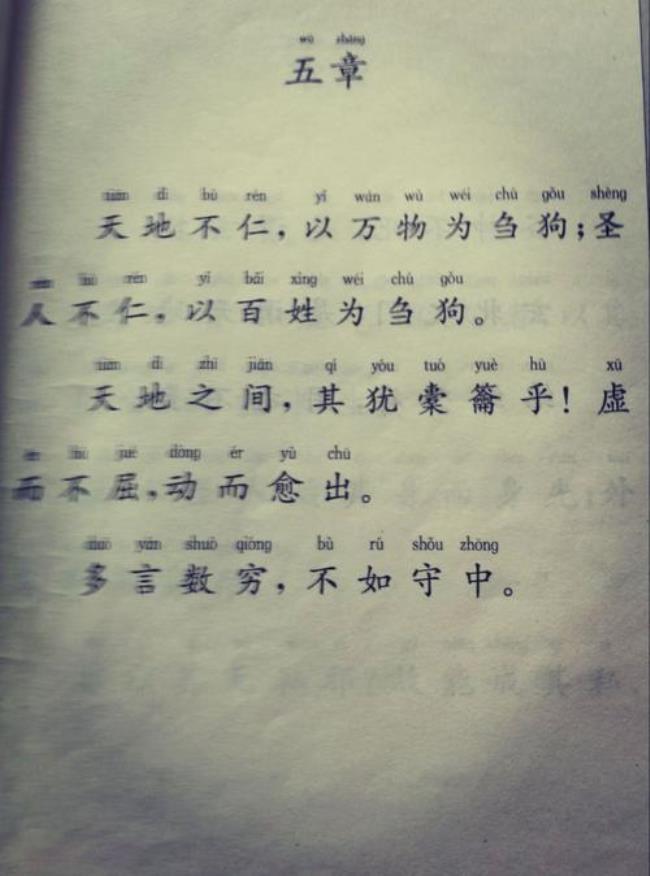 wǔ zhāng
五章
tiān dì bù rén yǐ wàn wù wéi chú gǒu shèng
天地不仁，以万物为刍狗；圣
rén bù rén yǐ bǎi xìng wéi chú gǒu
人不仁，以百姓为刍狗。
tiān dì zhī jiān qí yóu tuó yuè hū xū
天地之间，其犹橐籥乎！虚
ér bù jué dòng ér yù chū
而不屈，动而愈出。
duō yán shuò qióng bù rú shǒu zhōng
多言数穷，不如守中。